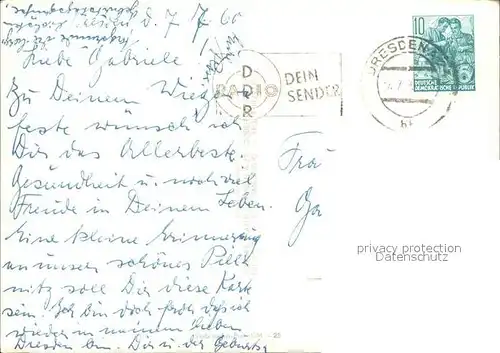 d. 7. 7. 60
Liebe Gabriele!
Zu Deinem Wiegen
feste wünsch ich
Dir das Allerbeste.
Gesundheit u. noch viel
Freude in Deinem Leben.
Eine kleine Erinnerung
an unser schönes Pill
nitz soll Dir diese Karte
sein. Ich bin doch froh daß ich
wieder in meinem lieben
Dresden bin. Dir u. der Geburts
DDR
RADIO
DEIN
SENDER
DRESDEN
10
DEUTSCHE
DEMOKRATISCHE REPUBLIK
Frä
Ga
privacy protection
Datenschutz